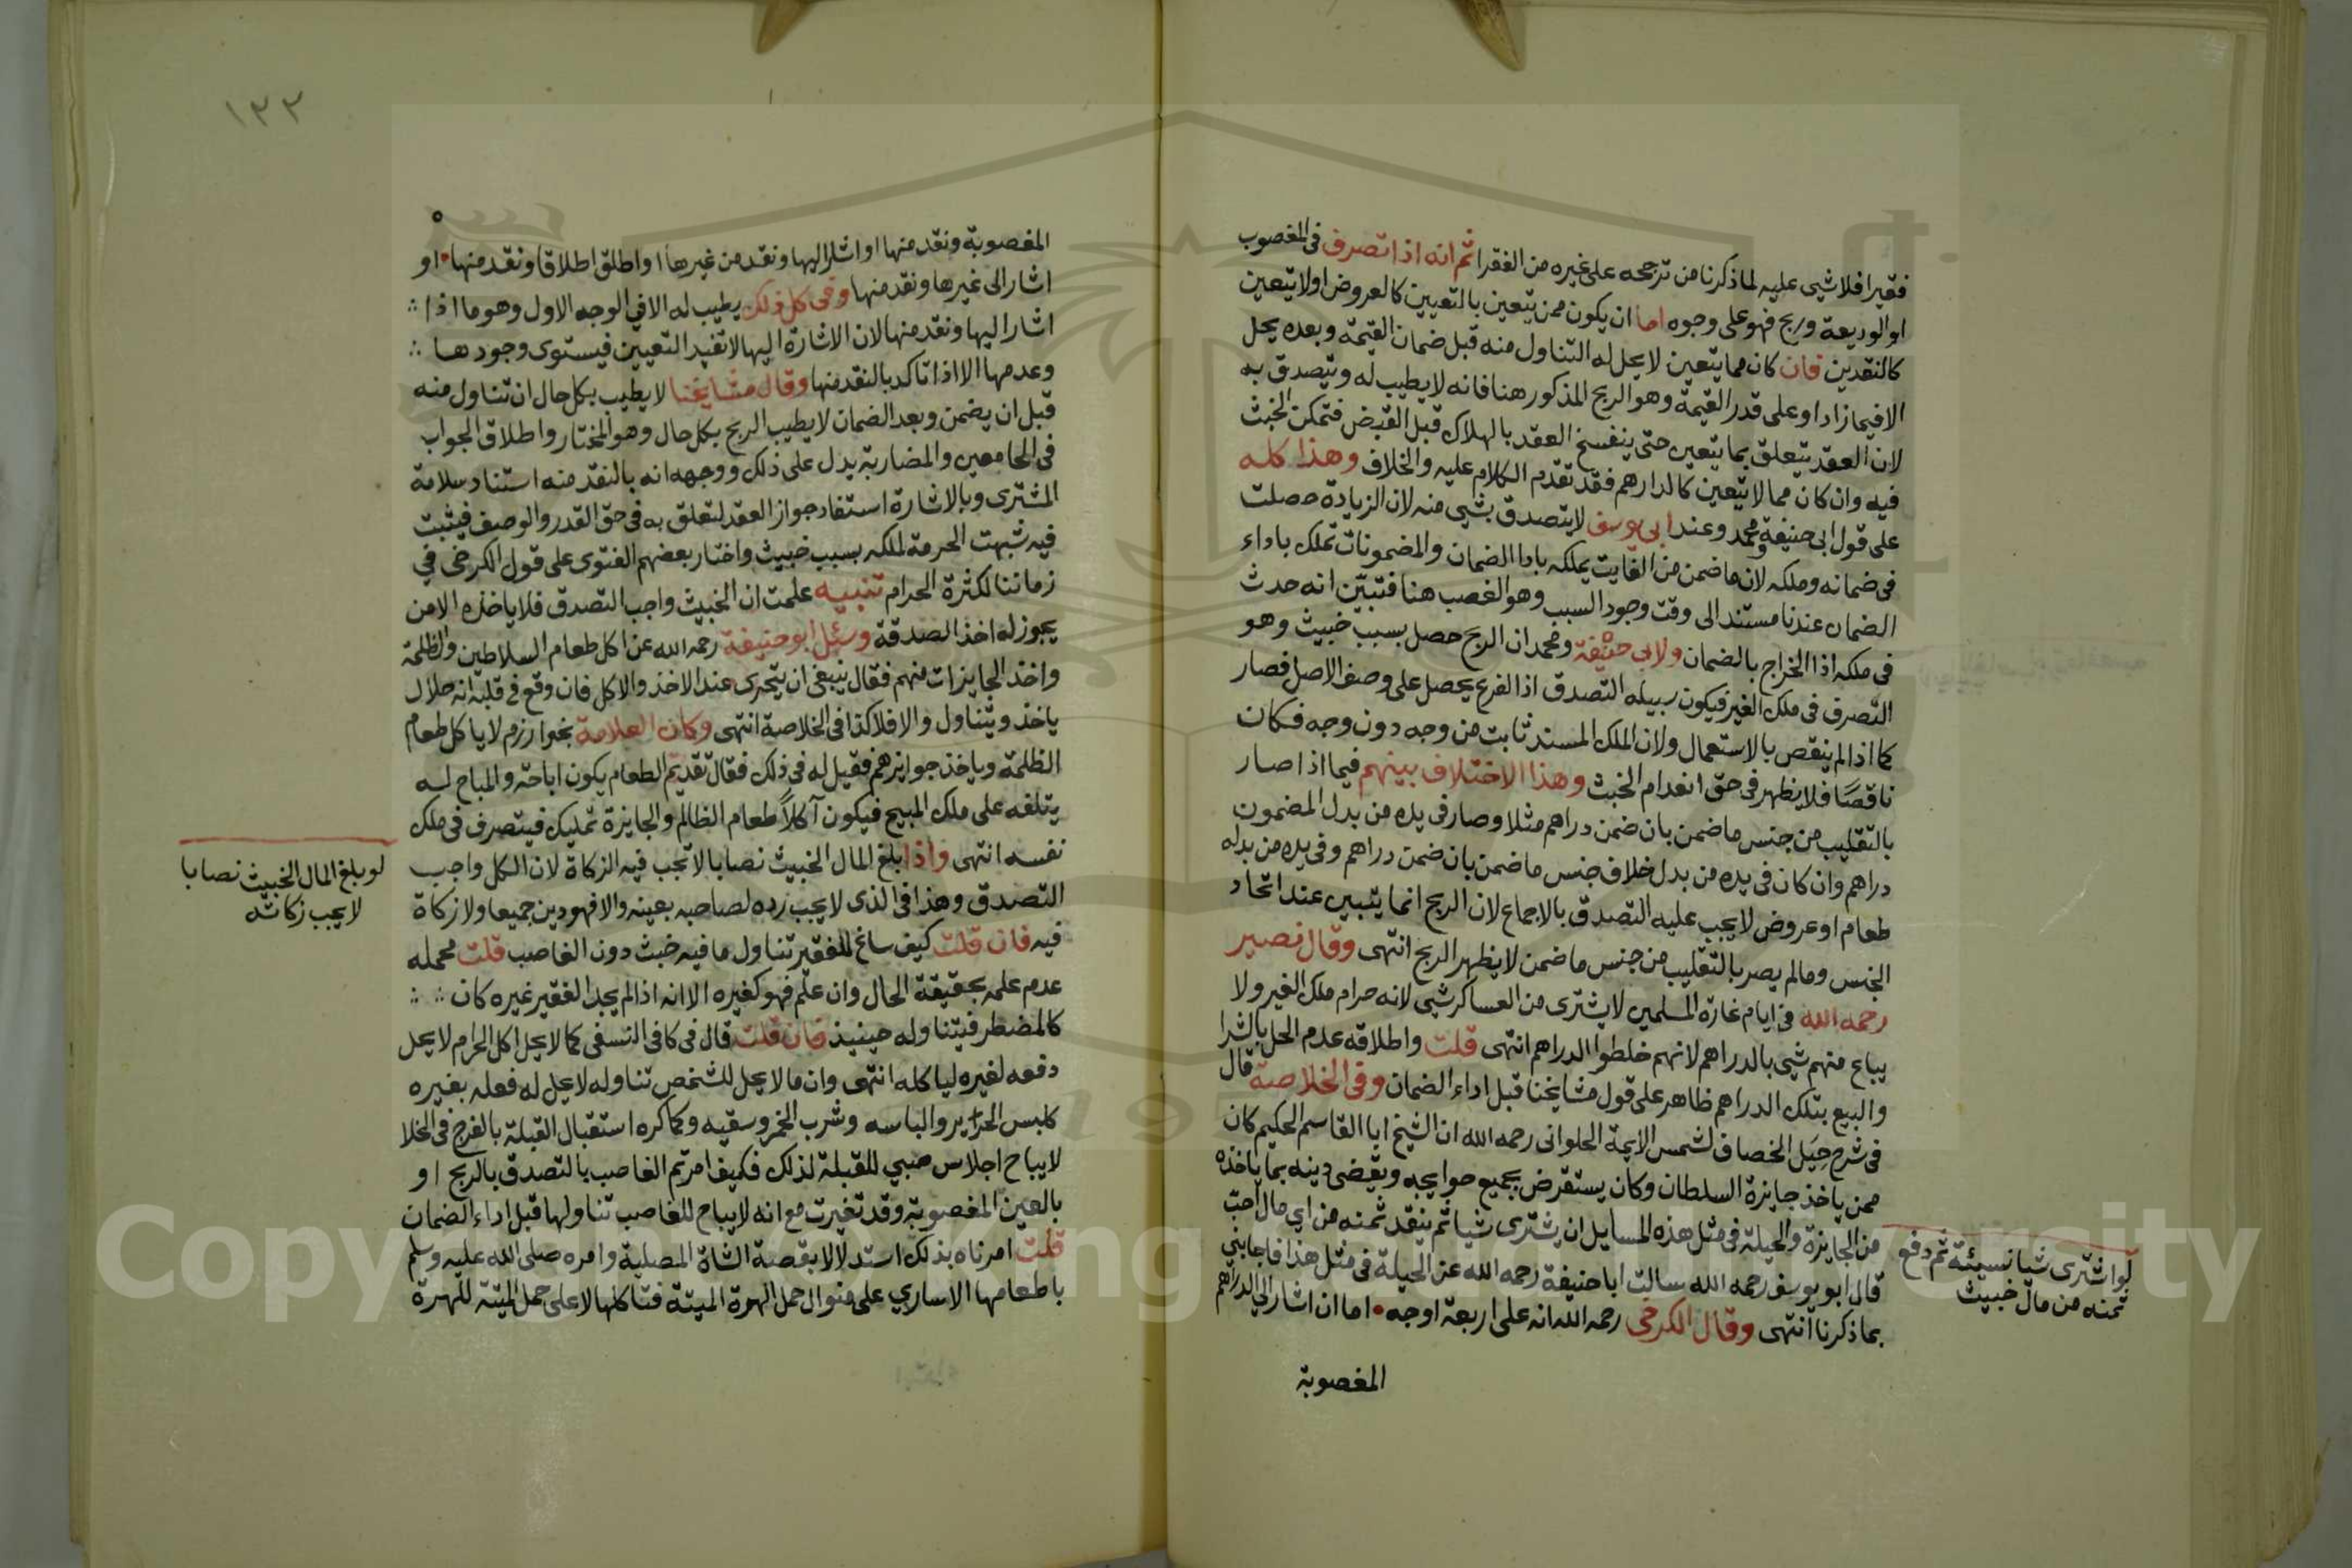 فقيرا فلا شيى عليه لما ذكرنا من ترجحه على غيره من الفقرا ثم انه اذا تصرف فى المغصوب
او الوديعة وربح فهو على وجوه اما ان يكون ممن يتعين بالتعيين كالعروض اولا يتعين
كالنقدين فان كان مما يتعين لا يحل له التناول منه قبل ضمان القيمة وبعده يحل
الا فيما زاد او على قدر القيمة وهو الربح المذكور هنا فانه لا يطيب له ويتصدق به
لان العقد يتعلق بما يتعين حتى ينفسخ العقد بالهلاك قبل القبض فتمكن الخبث
فيه وان كان مما لا يتعين كالدارهم فقد تقدم الكلام عليه والخلاف وهذا كله
على قول ابى حنيفة ومحمد وعند ابى يوسف لا يتصدق بشيى منه لان الزيادة حصلت
فى ضمانه وملكه لان ما ضمن من الفايت يملكه بادا الضمان والمضمونات تملك باداء
الضمان عندنا مستندا الى وقت وجود السبب وهو الغصب هنا فتبيّن انه حدث
فى ملكه اذا الخراج بالضمان ولابى حنيفة ومحمد ان الربح حصل بسبب خبيث وهو
التصرف فى ملك الغير فيكون سبيله التصدق اذ الفرع يحصل على وصف الاصل فصار
كما اذا لم ينقص بالاستعمال ولان الملك المسند ثابت من وجه دون وجه فكان
ناقصًا فلا يظهر فى حق انعدام الخبث وهذا الاختلاف بينهم فيما اذا صار
بالتقليب من جنس ما ضمن بان ضمن دراهم مثلا وصار فى يده من بدل المضمون
دراهم وان كان فى يده من بدل خلاف جنس ما ضمن بان ضمن دراهم وفى يده من بدله
طعام او عروض لا يجب عليه التصدق بالاجماع لان الربح انما يتبين عند اتحاد
الجنس وما لم يصر بالتقليب من جنس ما ضمن لا يظهر الربح انتهى وقال نصير
رحمه الله فى ايام غارة المسلمين لا يشترى من العساكر شيى لانه حرام ملك الغير ولا
يباع منهم شيى بالدراهم لانهم خلطوا الدراهم انتهى قلت واطلاقه عدم الحل بالشرا
والبيع بتلك الدراهم ظاهر على قول مشايخنا قبل اداء الضمان وفى الخلاصة قال
فى شرح حِيَل الخصاف لشمس الايمة الحلوانى رحمه الله ان الشيخ ابا القاسم الحكيم كان
ممن ياخذ جايزة السلطان وكان يستقرض بجميع حوايجه ويقضى دينه بما ياخذه
من الجايزة والحيلة فى مثل هذه المسايل ان يشترى شيا ثم ينقد ثمنه من اي مال احبّ
قال ابو يوسف رحمه الله سالت ابا حنيفة رحمه الله عن الحيلة فى مثل هذا فاجابني
بما ذكرنا انتهى وقال الكرخى رحمه الله انه على اربعة اوجه اما ان اشار الى الدراهم
المغصوبة
لو اشترى شيا نسيئة ثم دفع
ثمنه من مال خبيث
١٣٣
المغصوبة ونقد منها او اشار اليها ونقد من غيرها او اطلق اطلاقا ونقد منها او
اشار الى غيرها ونقد منها وفى كل ذلك يطيب له الا في الوجه الاول وهو ما اذا
اشار اليها ونقد منها لان الاشارة اليها لا تفيد التعيين فيستوى وجودها
وعدمها الا اذا تاكد بالنقد منها وقال مشايخنا لا يطيب بكل حال ان تناول منه
قبل ان يضمن وبعد الضمان لا يطيب الربح بكل حال وهو المختار واطلاق الجواب
فى الجامعين والمضاربة يدل على ذلك ووجهه انه بالنقد منه استناد سلامة
المشترى وبالاشارة استفاد جواز العقد لتعلق به فى حق القدر والوصف فيثبت
فيه شبهت الحرمة لملكه بسبب خبيث واختار بعضهم الفتوى على قول الكرخى في
زماننا لكثرة الحرام تنبيه علمت ان الخبيث واجب التصدق فلا ياخذه الا من
يجوز له اخذ الصدقة وسئل ابو حنيفة رحمه الله عن اكل طعام السلاطين والظلمة
واخذ الجايزات منهم فقال ينبغى ان يتحرى عند الاخذ والاكل فان وقع فى قلبه انه حلال
ياخذ ويتناول والا فلا كذا فى الخلاصة انتهى وكان العلامة بخوارزم لا ياكل طعام
الظلمة وياخذ جوايزهم فقيل له فى ذلك فقال تقديم الطعام يكون اباحة والمباح له
يتلفه على ملك المبيح فيكون آكلاً طعام الظالم والجايزة تمليك فيتصرف فى ملك
نفسه انتهى واذا بلغ المال الخبيث نصابا لا تجب فيه الزكاة لان الكل واجب
التصدق وهذا فى الذى لا يجب رده لصاحبه بعينه والا فهو دين جميعا ولا زكاة
فيه فان قلت كيف ساغ للفقير تناول ما فيه خبث دون الغاصب قلت محمله
عدم علمه بحقيقة الحال وان علم فهو كغيره الا انه اذا لم يجد الفقير غيره كان
كالمضطر فيتناوله حينيذ فان قلت قال فى كافى النسفى كما لا يحل اكل الحرام لا يحل
دفعه لغيره لياكله انتهى وان ما لا يحل للشخص تناوله لا يحل له فعله بغيره
كلبس الحرير والباسه وشرب الخمر وسقيه وكما كره استقبال القبلة بالفرج فى الخلا
لا يباح اجلاس صبي للقبلة لذلك فكيف امرتم الغاصب بالتصدق بالربح او
بالعين المغصوبة وقد تغيرت مع انه لا يباح للغاصب تناولها قبل اداء الضمان
قلت امرناه بذلك استدلالا بقصة الشاة المصلية وامره صلى الله عليه وسلم
باطعامها الاساري على منوال حمل الهرة الميتة فتاكلها لا على حمل الميتة للهرة
لو بلغ المال الخبيث نصابا
لا يجب زكاته